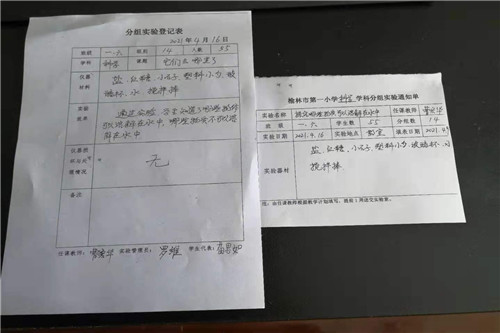 分组实验登记表
2021年4月16日
班级 一.六 组别 14 人数 55
学科 科学 课题 它们去哪里了
仪器
材料
盐、红糖、小石子、塑料小勺、玻
璃杯、水、搅拌棒
实验
效果
通过实验,学生知道了哪些物质
能溶解在水中,哪些物质不能溶
解在水中
仪器损
坏与赔
偿情况
无
备注
任课教师: 实验管理员: 罗维 学生代表:
榆林市第一小学科学学科分组实验通知单
实验名称 研究哪些物质可以溶解在水中 任课教师
班级 一.六 学生数 55 分组数 14
实验日期 2021.4.16 实验地点 教室 填表日期 2021.4.
实验器材
盐、红糖、小石子、塑料小勺、玻璃杯、水
搅拌棒
注:由任课教师根据教学计划填写,提前1周送交实验室。